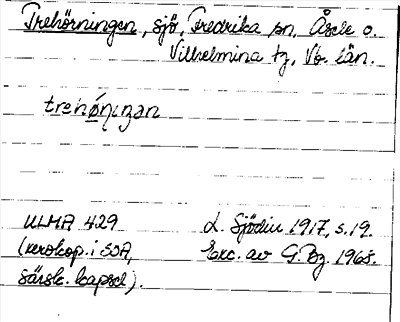 Trehörningen, sjö, Fredrika sn, Åsele o.
Vilhelmina tg, Vb. län.
trehö́ṇıŋən
ULMA 429 L. Sjödin 1917, s. 19.
(xerokop. i SOA, Exc. av G. Bz 1968.
särsk. kapsel).